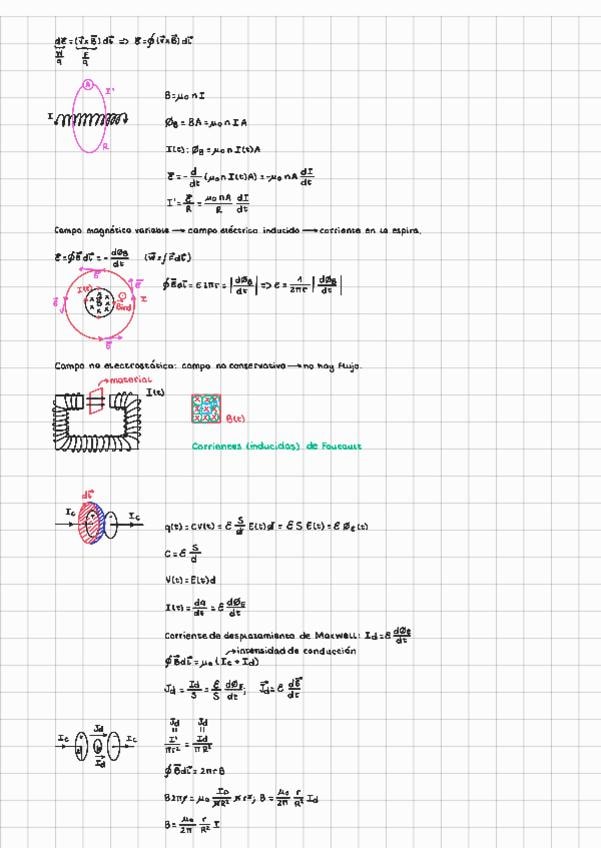 dε = (v⃗ x B⃗) dl⃗ ⇒ ε = ∮(v⃗ x B⃗) dl⃗
W/q F⃗/q
A
I'
I
R
B = μ₀ n I
Ø_B = BA = μ₀ n I A
I(t): Ø_B = μ₀ n I(t) A
ε = - d/dt (μ₀ n I(t) A) = - μ₀ n A dI/dt
I' = ε/R = μ₀ n A/R dI/dt
Campo magnético variable → campo eléctrico inducido → corriente en la espira.
ε = ∮E⃗ dl⃗ = - dØ_B/dt (W = ∫F⃗ dl⃗)
I(t)
B ind
I
∮E⃗ dl⃗ = E 2πr = |dØ_B/dt| ⇒ E = 1/2πr |dØ_B/dt|
Campo no electrostático: campo no conservativo → no hay flujo.
material
I(t)
B(t)
Corrientes (inducidas) de Foucault
dl⃗
I_c I_c
q(t) = C V(t) = ε S/d E(t) d = ε S E(t) = ε Ø_E(t)
C = ε S/d
V(t) = E(t) d
I(t) = dq/dt = ε dØ_E/dt
Corriente de desplazamiento de Maxwell: I_d = ε dØ_E/dt
intensidad de conducción
∮B⃗ dl⃗ = μ₀ (I_c + I_d)
J_d = I_d/S = ε/S dØ_E/dt; J⃗_d = ε dE⃗/dt
J_d J_d
I_c J_d I_c
I_d
I'/πr² = I_d/πR²
∮B⃗ dl⃗ = 2πrB
B 2πr = μ₀ I_D/πR² πr²; B = μ₀/2π r/R² I_d
B = μ₀/2π r/R² I